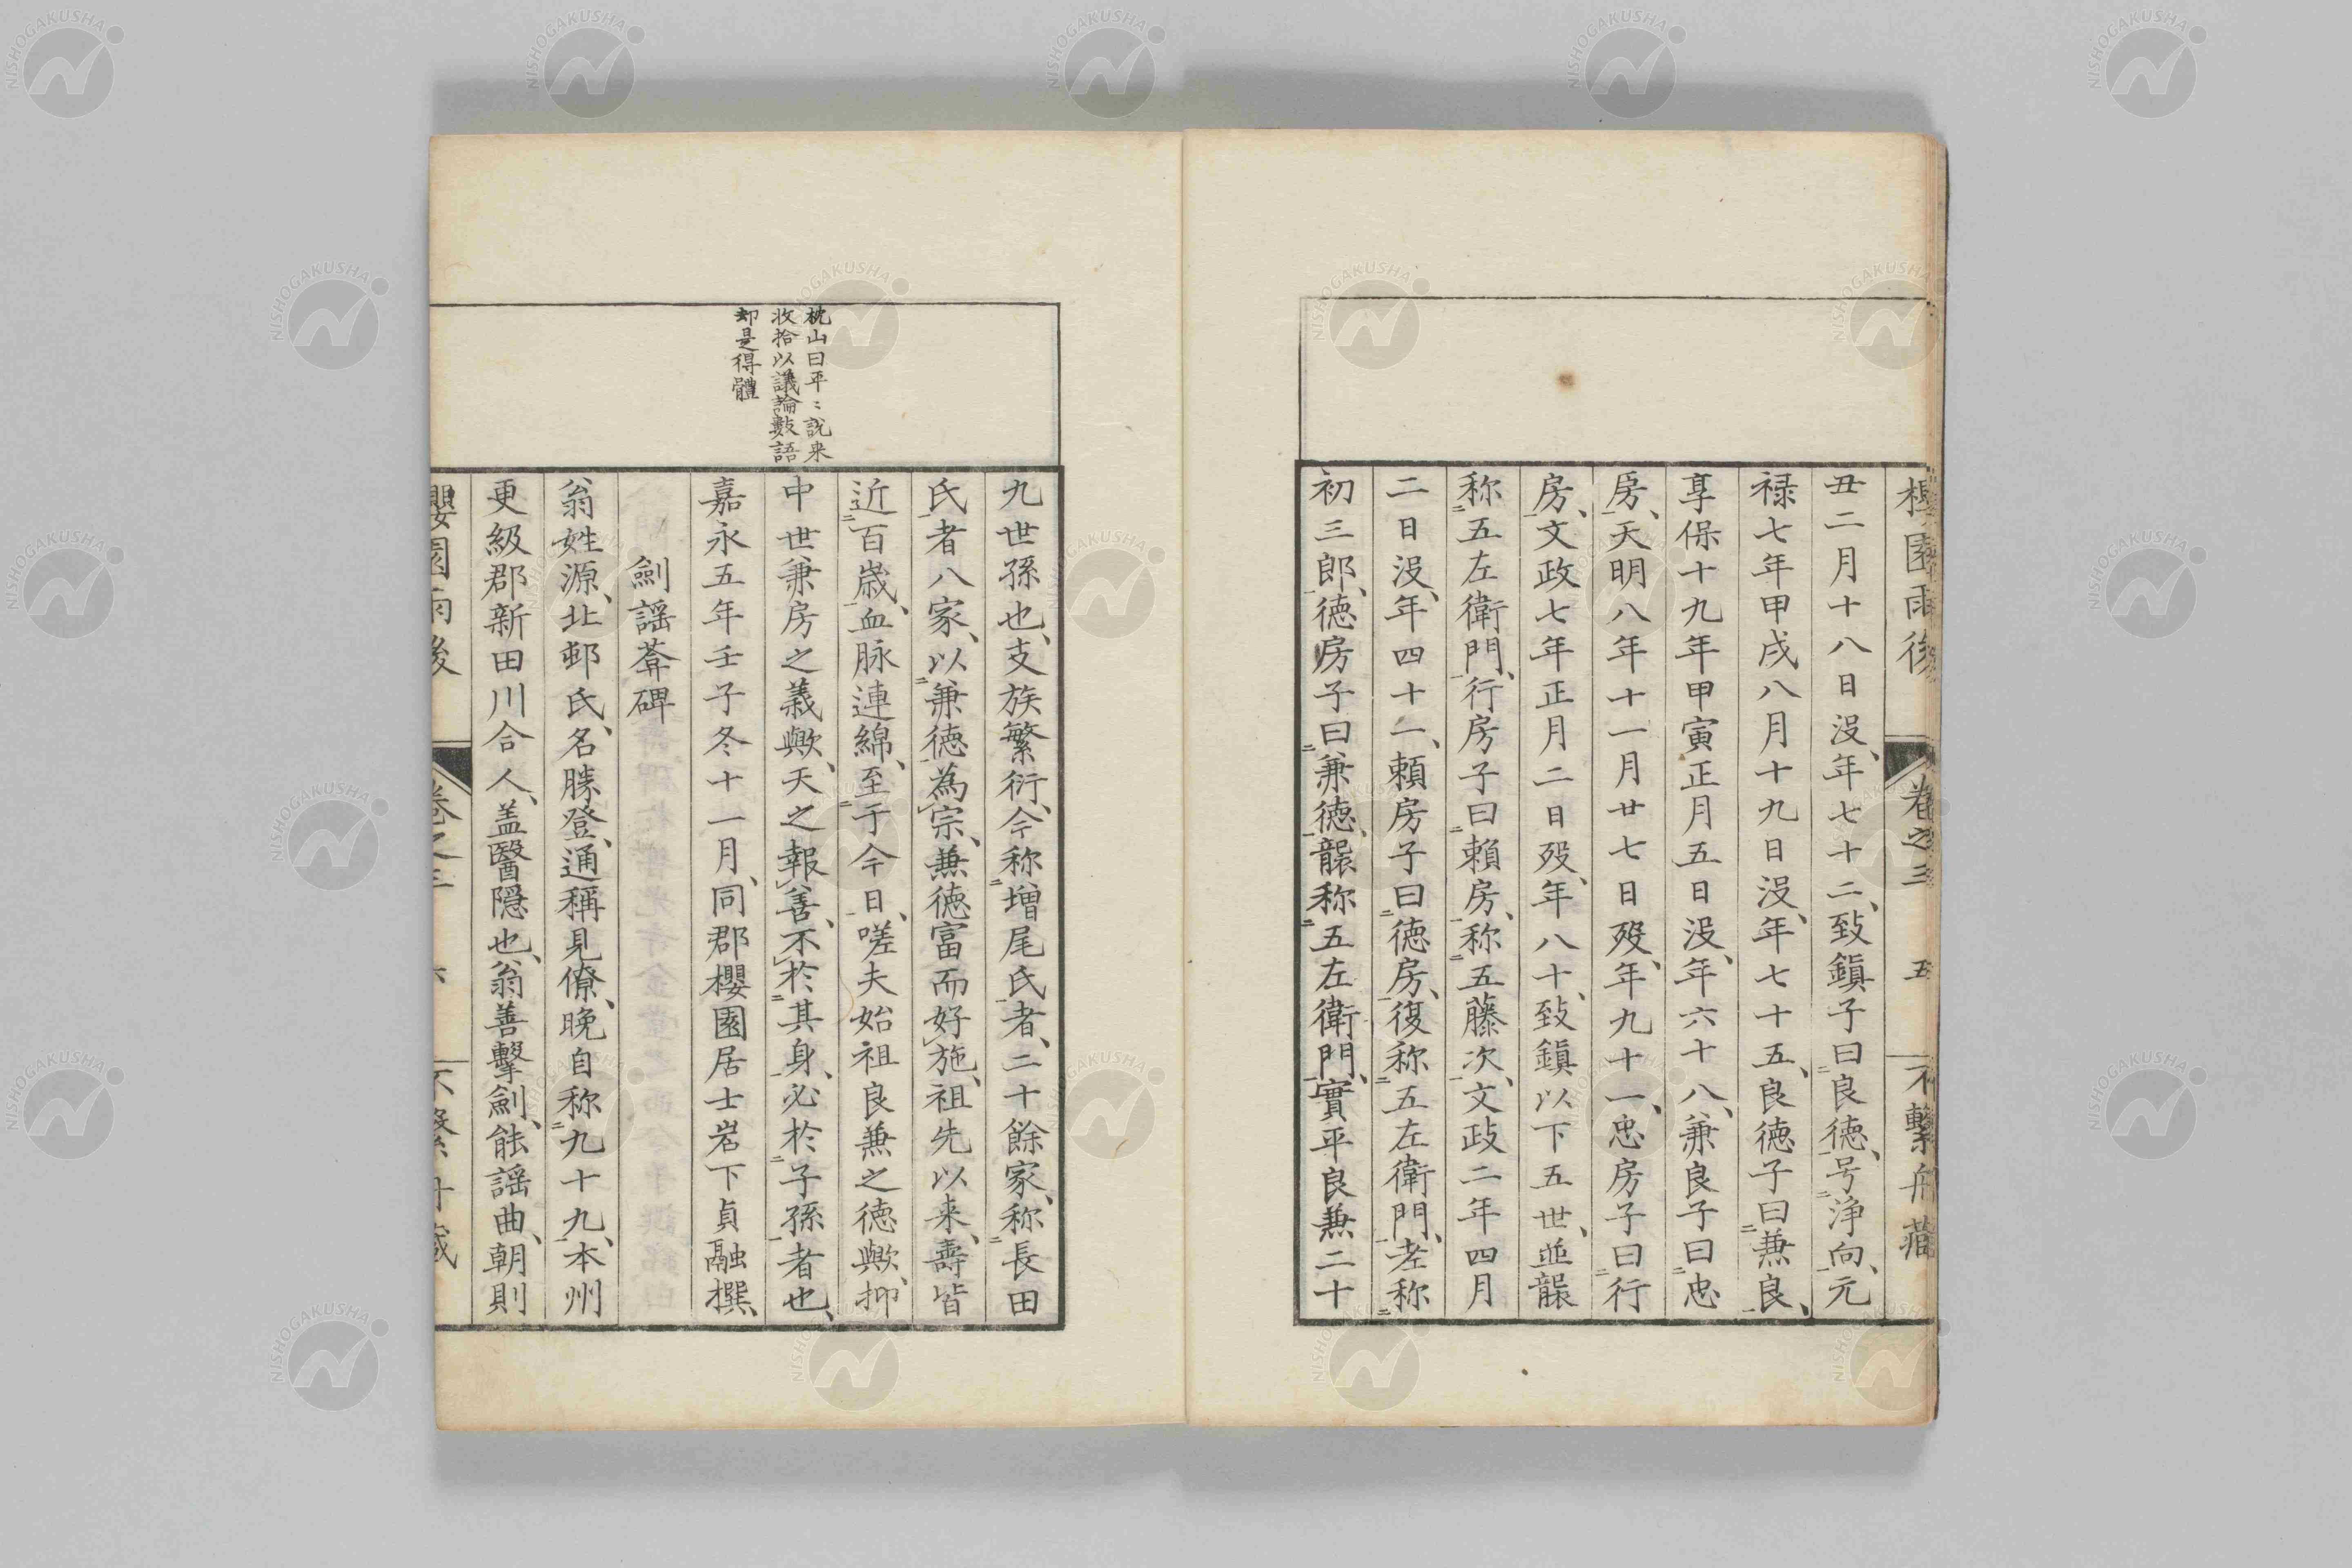 櫻園雨後 卷之三 五 不繫舟藏
丑二月十八日没、年七十二、致鎭子曰良德、号浄向、元
禄七年甲戌八月十九日没、年七十五、良德子曰兼良、
享保十九年甲寅正月五日没、年六十八、兼良子曰忠
房、天明八年十一月廿七日歿、年九十一、忠房子曰行
房、文政七年正月二日歿、年八十、致鎭以下五世、並襲
称五左衛門、行房子曰賴房、称五藤次、文政二年四月
二日没、年四十一、賴房子曰德房、復称五左衛門、老称
初三郎、德房子曰兼德、襲称五左衛門、實平良兼二十
九世孫也、支族繁衍、今称增尾氏者、二十餘家、称長田
氏者八家、以兼德為宗、兼德富而好施、祖先以来、壽皆
近百歳、血脉連綿、至于今日、嗟夫始祖良兼之德歟、抑
中世兼房之義歟、天之報善、不於其身、必於子孫者也、
嘉永五年壬子冬十一月、同郡櫻園居士岩下貞融撰、
劍謡莽碑
翁姓源、北邨氏、名勝登、通稱見僚、晩自称九十九、本州
更級郡新田川合人、盖醫隠也、翁善擊劍、能謡曲、朝則
枕山曰平々説来
收拾以議論數語
却是得體
櫻園雨後 卷之三 六 不繫舟藏
NISHOGAKUSHA